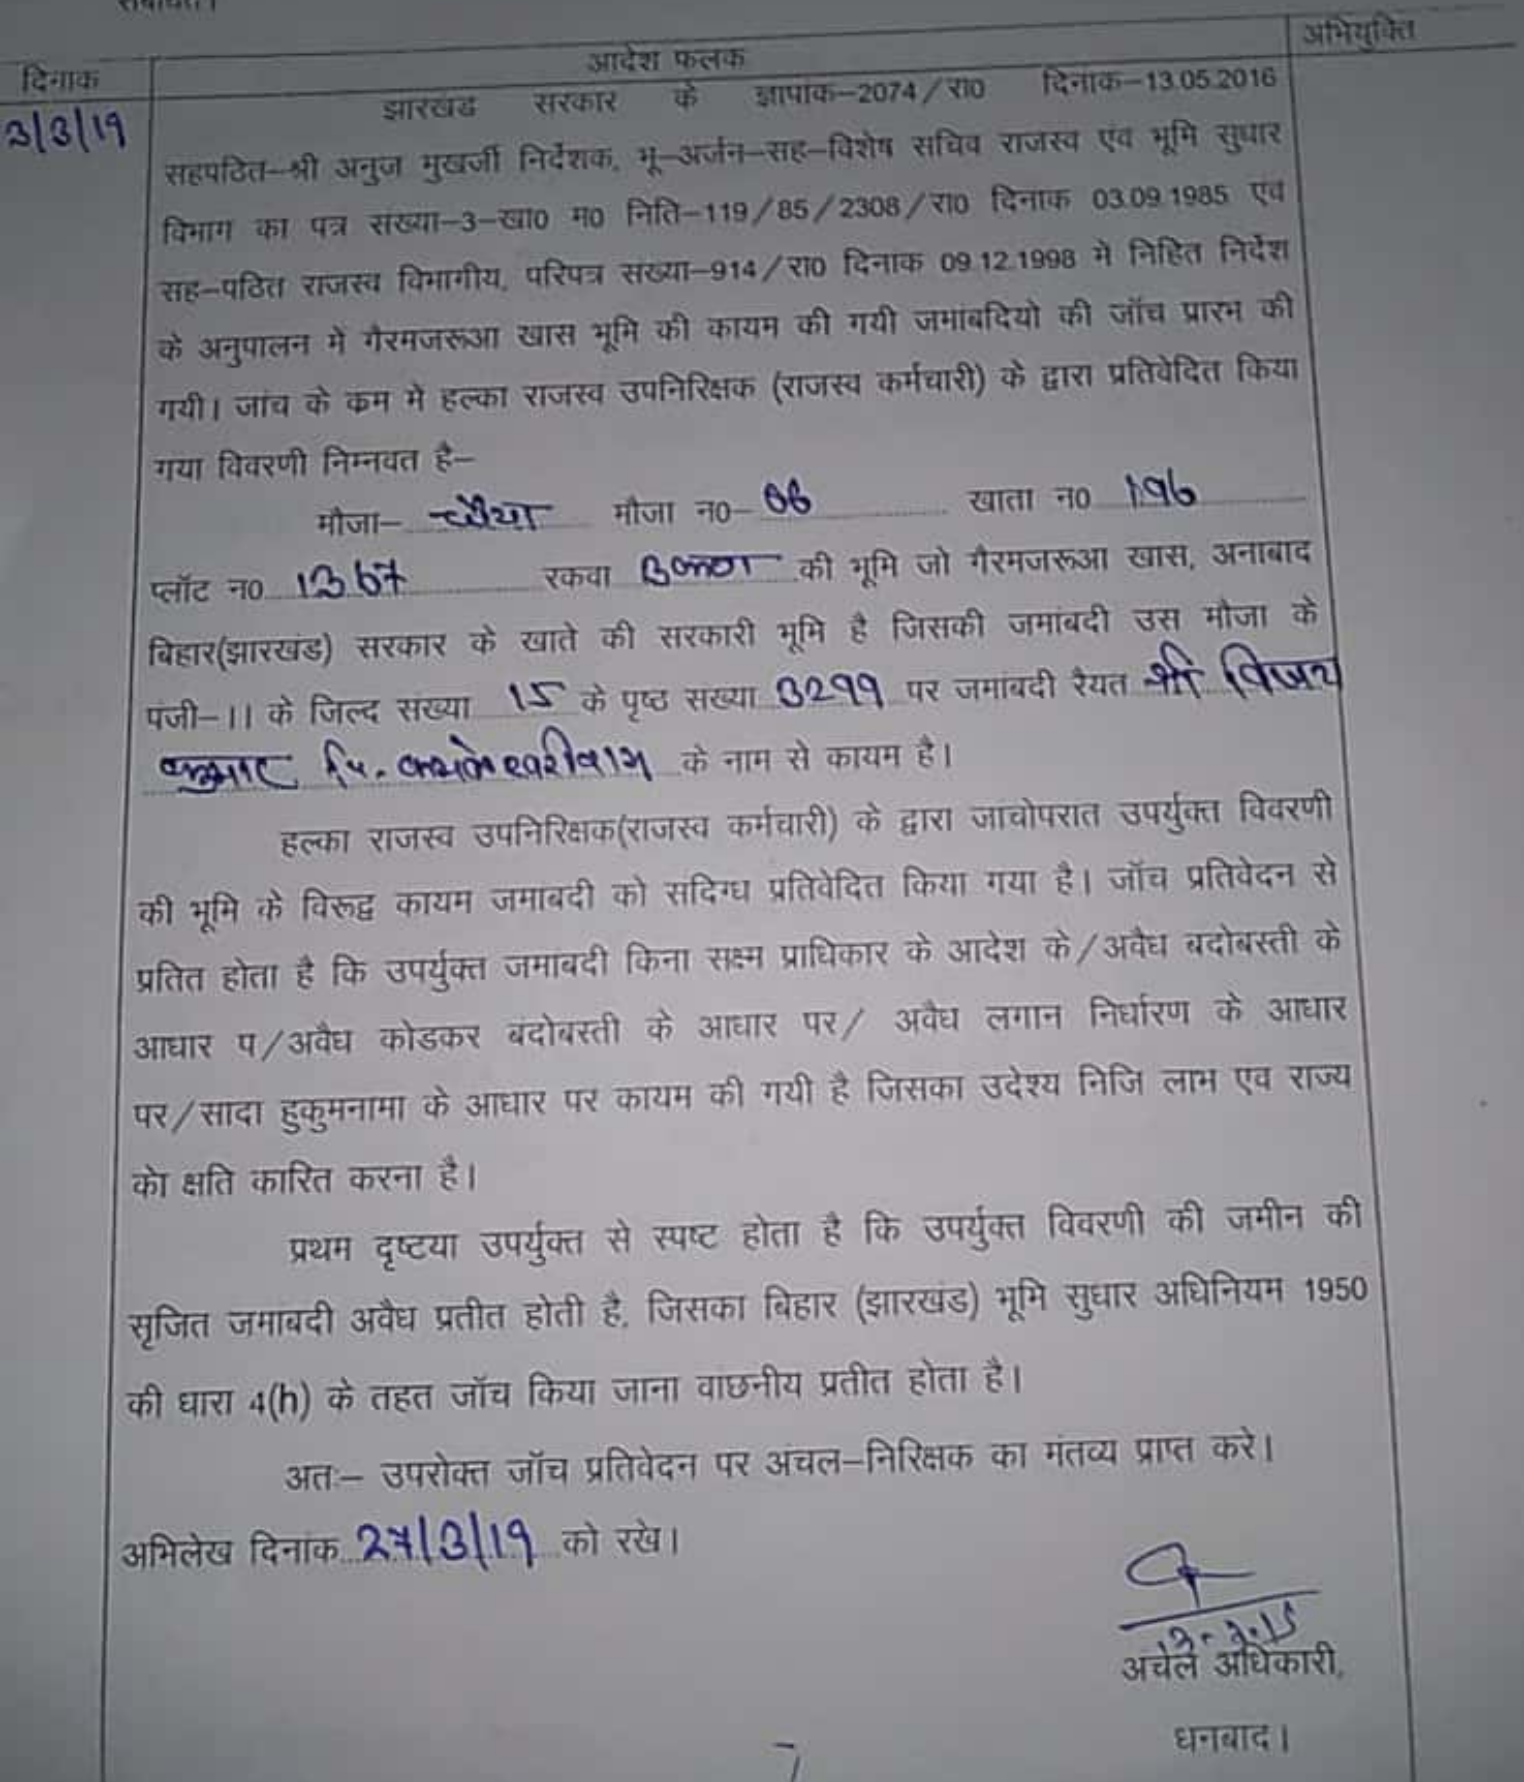 अभियुक्ति
दिनाक आदेश फलक
3/3/19 झारखंड सरकार के ज्ञापांक–2074/रा0 दिनाक–13.05.2016
सहपठित–श्री अनुज मुखर्जी निर्देशक, भू–अर्जन–सह–विशेष सचिव राजस्व एंव भूमि सुधार
विभाग का पत्र संख्या–3–खा0 म0 निति–119/85/2308/रा0 दिनाक 03.09.1985 एंव
सह–पठित राजस्व विभागीय, परिपत्र संख्या–914/रा0 दिनाक 09.12.1998 मे निहित निर्देश
के अनुपालन मे गैरमजरूआ खास भूमि की कायम की गयी जमांबदियो की जॉच प्रारंभ की
गयी। जांच के कम मे हल्का राजस्व उपनिरिक्षक (राजस्व कर्मचारी) के द्वारा प्रतिवेदित किया
गया विवरणी निम्नवत है–
मौजा– मौजा न0– 06 खाता न0 196
प्लॉट न0 1367 रकवा की भूमि जो गैरमजरूआ खास, अनाबाद
बिहार(झारखंड) सरकार के खाते की सरकारी भूमि है जिसकी जमांबदी उस मौजा के
पंजी–।। के जिल्द संख्या 15 के पृष्ठ संख्या 3299 पर जमांबदी रैयत श्री विजय
कुमार पि. के नाम से कायम है।
हल्का राजस्व उपनिरिक्षक(राजस्व कर्मचारी) के द्वारा जांचोपरात उपर्युक्त विवरणी
की भूमि के विरूद्व कायम जमाबदी को सदिग्ध प्रतिवेदित किया गया है। जॉच प्रतिवेदन से
प्रतित होता है कि उपर्युक्त जमांबदी किना सक्ष्म प्राधिकार के आदेश के/अवैध बदोबस्ती के
आधार प/अवैध कोडकर बंदोबस्ती के आधार पर/ अवैध लगान निर्धारण के आधार
पर/सादा हुकुमनामा के आधार पर कायम की गयी है जिसका उदेश्य निजि लाभ एव राज्य
को क्षति कारित करना है।
प्रथम दृष्टया उपर्युक्त से स्पष्ट होता है कि उपर्युक्त विवरणी की जमीन की
सृजित जमाबदी अवैध प्रतीत होती है, जिसका बिहार (झारखंड) भूमि सुधार अधिनियम 1950
की धारा 4(h) के तहत जॉच किया जाना वांछनीय प्रतीत होता है।
अतः– उपरोक्त जॉच प्रतिवेदन पर अंचल–निरिक्षक का मंतव्य प्राप्त करे।
अभिलेख दिनांक 27/3/19 को रखे।
अंचल अधिकारी,
धनबाद।